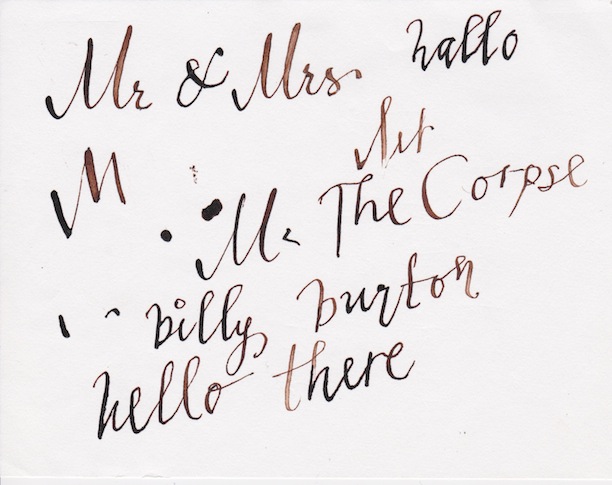 Mr & Mrs. hallo
M
Mr The Corpse
billy burton
hello there